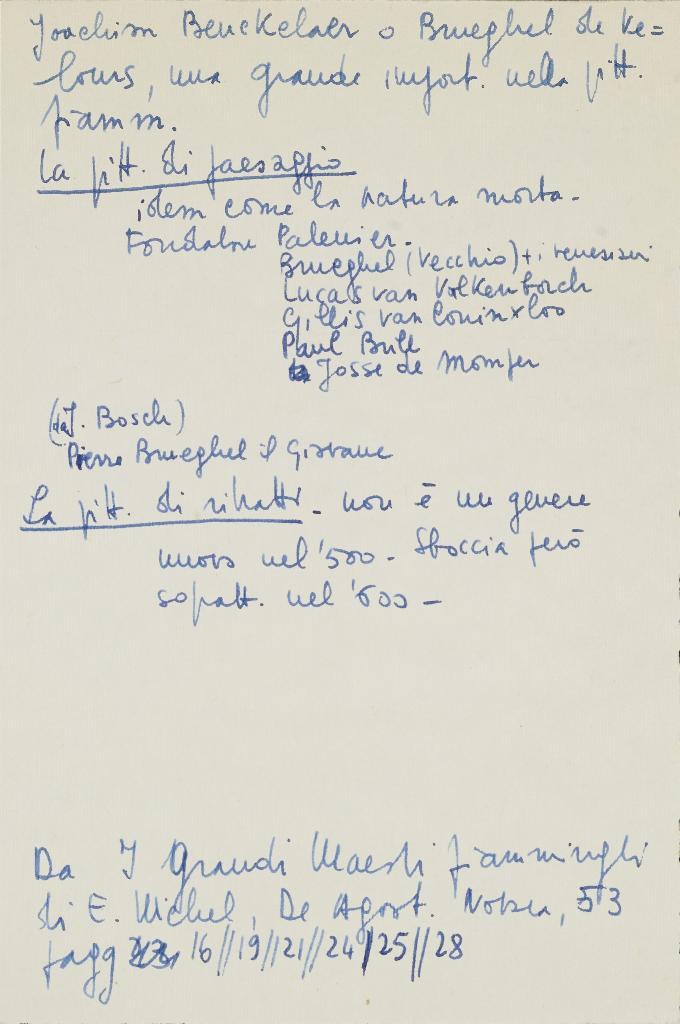 Joachim Beuckelaer o Brueghel de Ve=
lours, una grande import. nella pitt.
fiamm.
La pitt. di paesaggio
idem come la natura morta -
Fondatore Patenier.
Brueghel (Vecchio) + i
Lucas van Valkenborch
Gillis van Coninxloo
Paul Brill
Josse de Momper
(da J. Bosch)
Pierre Brueghel il Giovane
La pitt. di ritratti - non è un genere
nuovo nel '500 - Sboccia però
sopratt. nel '600 -
Da I Grandi Maestri fiamminghi
di E. Michel, De Agost. Novara, 53
pagg 16//19//21//24/25//28